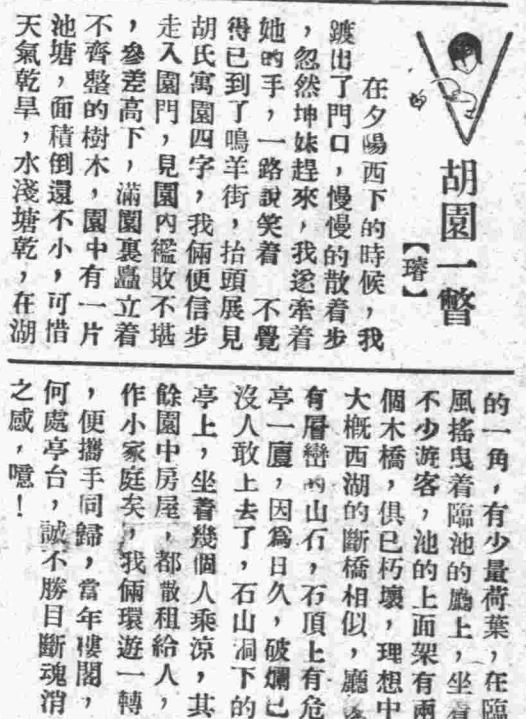 胡園一瞥
【璿】
在夕陽西下的時候，我
踱出了門口，慢慢的散着步
，忽然坤妹趕來，我遂牽着
她的手，一路說笑着　不覺
得已到了鳴羊街，抬頭展見
胡氏寓園四字，我倆便信步
走入園門，見園內襤敗不堪
，參差高下，滿園裏矗立着
不齊整的樹木，園中有一片
池塘，面積倒還不小，可惜
天氣乾旱，水淺塘乾，在湖
的一角，有少量荷葉，在臨
風搖曳着臨池的廳上，坐着
不少游客，池的上面架有兩
個木橋，俱已朽壞，理想中
大概西湖的斷橋相似，廳
有層巒的山石，石頂上有危
亭一廈，因爲日久，破爛已
沒人敢上去了，石山洞下的
亭上，坐着幾個人乘涼，其
餘園中房屋，都散租給人，
作小家庭矣，我倆環遊一轉
，便攜手同歸，當年樓閣，
何處亭台，誠不勝目斷魂消
之感，噫！